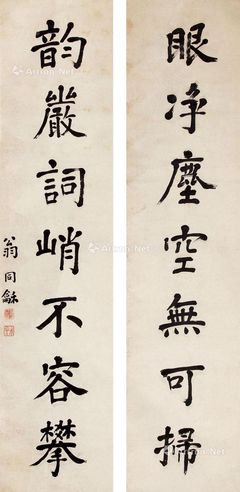 眼净塵空無可掃
韵巖詞峭不容攀
翁同龢
Artron.Net
Artron.Net